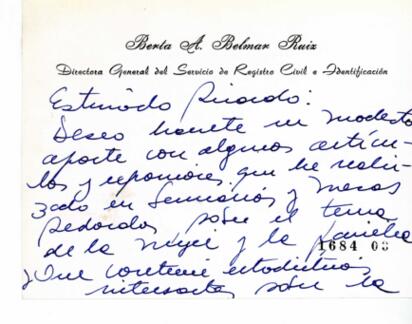 Berta A. Belmar Ruiz
Directora General del Servicio de Registro Civil e Identificación
Estimado Ricardo:
Deseo hacerte un modesto
aporte con algunos artícu-
los y reponiones que he reali-
zado en Seminarios y Mesas
Redondas sobre el tema
de la Mujer y la familia
1684 03
y que contiene estadísticas
interesantes sobre la